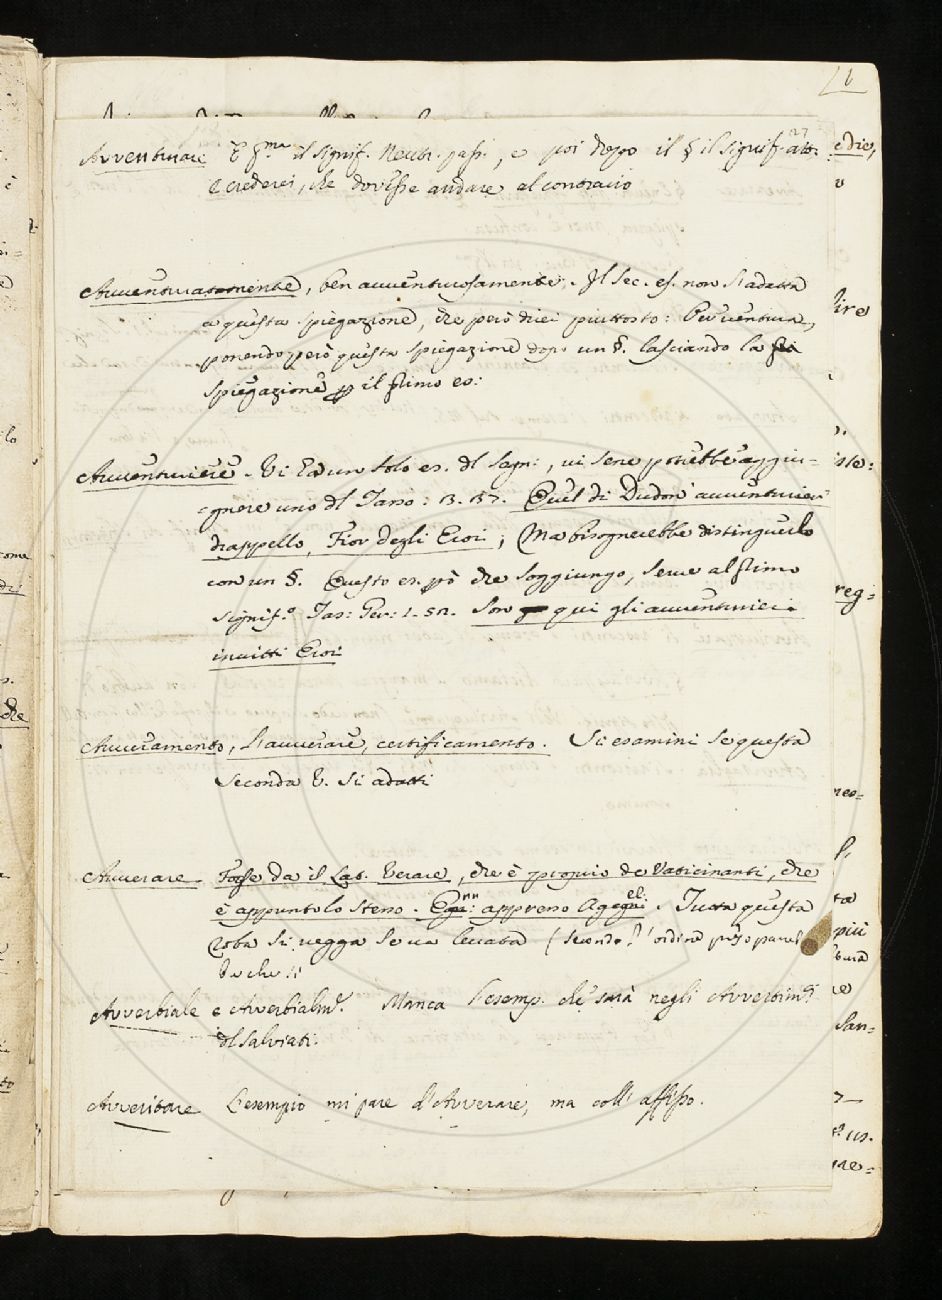 Avventurare È p.ma il signif. Neutr. pass., e poi dopo il § il signif. att:
e crederei, che dovesse andare al contrario
Avventuratamente, ben avventurosamente. Il sec. es. non s'adatta
a questa spiegazione, che però direi piuttosto: Per ventura,
ponendo però questa spiegazione dopo un §. lasciando la
spiegazione p il primo es:
Avventuriere. Vi è un solo es. dl Segn:, vi sene potrebbe aggiu=
gnere uno dl Tasso: 3. 37. Quel di Dudon' avventurier
drappello, Fior degli Eroi; Ma bisognerebbe distinguerlo
con un §. Questo es. pò che soggiungo, serve al primo
signif.o Tas: Ger: 1. 52. Son qui gli avventurieri
invitti Eroi
Avveramento, L'avverare, certificamento. Si esamini se questa
seconda V. si adatti
Avverare. Forse da il Lat. Verare, che è proprio de Vaticinanti, che
è appunto lo stesso. Enn: appresso Agelli. Tutta questa
roba si vegga se va levata (secondo l'ordine
Avverbiale e Avverbialm.e Manca l'esemp. che sarà negli Avvertim.ti
dl Salviati.
Avveritare L'esempio mi pare d'Avverare, ma coll' affisso.